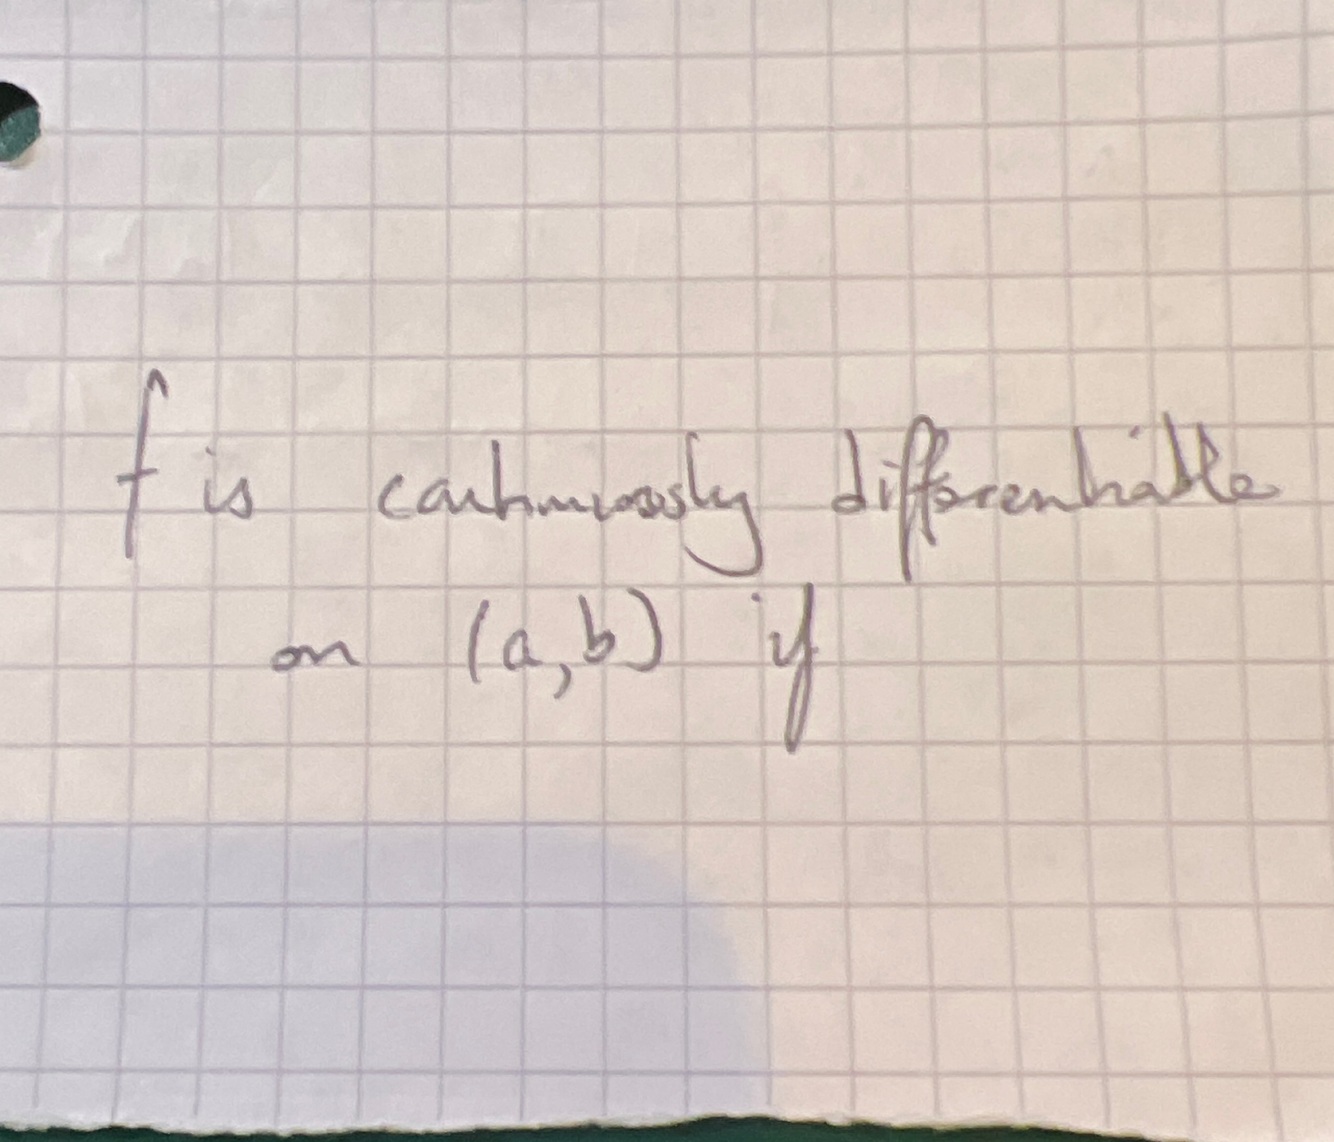 f is continuously differentiable
on (a,b) if